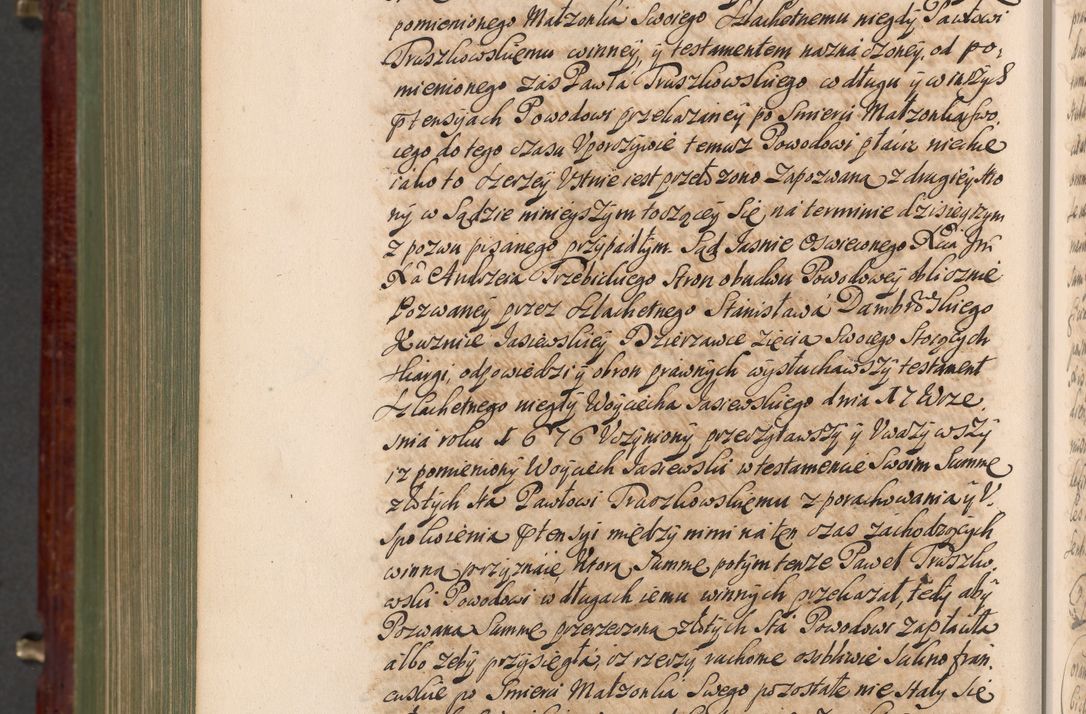 pomienionego Małzonka Swoiego Szlachetnemu niegdy Pawłowi
Truszkowskiemu winney, y testamentem naznaczoney, od po,
mienionego zas Pawła Truszkowskiego co długu y w inszych
ptensyiach Powodowi przekazaney po Smierci Małzonka swo,
iego do tego czasu Uporczywie temuz Powodowi płacic niechce
iako to szerzey Ustnie iest przełozono Zapozwana z drugiey stro
ny w Sądzie ninieyszym toczącey się, na terminie dzisieyszym
z pozwu pisanego przypadłym. Sąd Jasnie Oswieconego
Andrzeia Trzebickiego Stron obudwu Powodowey oblicznie
Pozwaney przez Szlachetnego Stanisława Dambrowskiego
Kuznice Jasiewskiey Dzierzawce Zięcia Swoiego Stoiących
skargi, odpowiedzi y obron prawnych wysłuchawszy testament
Szlachetnego niegdy Woyciecha Jasiewskiego dnia 17 Wrze
snia roku 1676 Uczyniony przeczytawszy y Uwazywszy
iz pomieniony Woyciech Jasiewski w testamencie Swoim Summe
złotych sta Pawłowi Truszkowskiemu z porachowania y U,
spokoienia ptensyi między nimi na ten czas zachodzących
winna przyznaie, Ktorą Summe potym tenze Paweł Truszko,
wski Powodowi w długach iemu winnych przekazał, tedy aby
Pozwana Summe przerzeczoną złotych sta Powodowi zapłaciła
albo zeby przysięgła, iz rzeczy ruchome osobliwie Sukno fran,
cuskie po Smierci Małzonka Swego pozostałe nie stały się